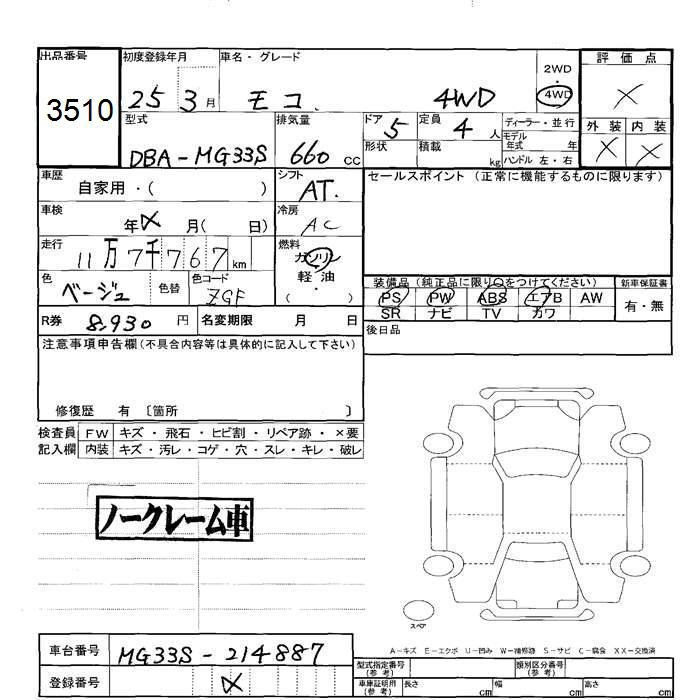 出品番号 初度登録年月 車名・グレード 2WD 評価点
3510 25 3月 モコ. 4WD 4WD ×
型式 排気量 ドア 5 定員 4人 ディーラー・並行 外装 内装
DBA-MG33S 660 cc 形状 積載 kg モデル年式 年 × ×
ハンドル 左・右
車歴 自家用・( ) シフト AT. セールスポイント (正常に機能するものに限ります)
車検 年 × 月( 日) 冷房 AC
走行 11万7千767km 燃料 ガソリン
軽・油
( )
色 ベージュ 色替 色コード ZGF 装備品 (純正品に限り○をつけてください) 新車保証書
PS PW ABS エアB AW 有・無
SR ナビ TV カワ
R券 8,930円 名変期限 月 日 後日品
注意事項申告欄(不具合内容等は具体的に記入して下さい)
修復歴 有 〔箇所 〕
検査員 FW キズ・飛石・ヒビ割・リペア跡・×要
記入欄 内装 キズ・汚レ・コゲ・穴・スレ・キレ・破レ
ノークレーム車
スペア
A-キズ E-エクボ U-凹み W-補修跡 S-サビ C-腐食 XX-交換済
車台番号 MG33S-214887
登録番号 ×
型式指定番号(参考) 類別区分番号(参考)
車庫証明用(参考) 長さ cm 幅 cm 高さ cm